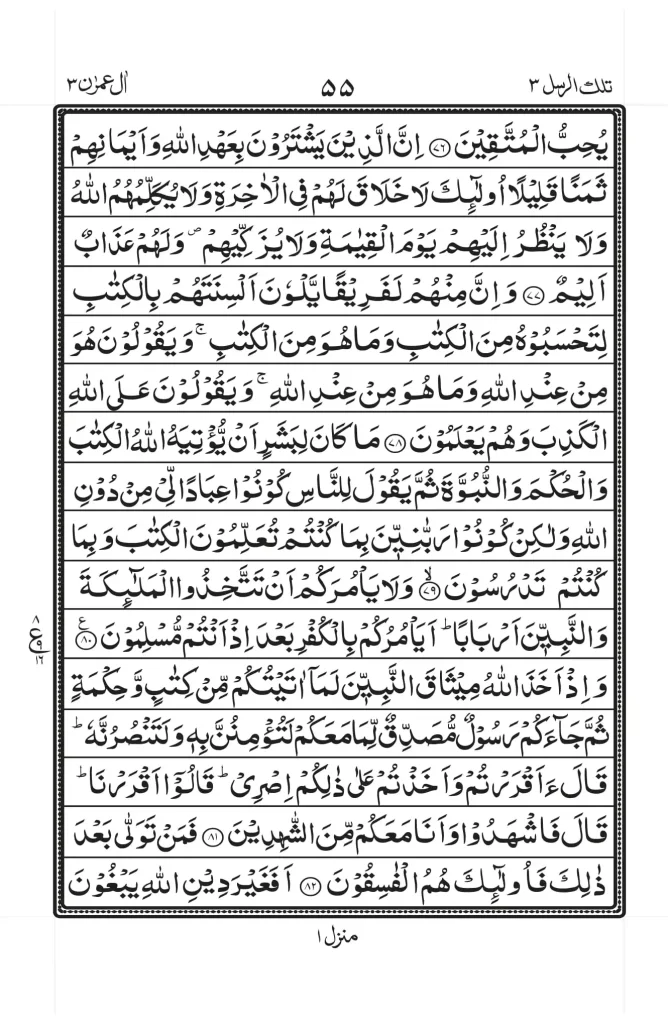 تلك الرسل ٣
۵۵
اٰل عمرٰن ٣
يُحِبُّ الْمُتَّقِيْنَ ﴿۷۶﴾ اِنَّ الَّذِيْنَ يَشْتَرُوْنَ بِعَهْدِ اللّٰهِ وَاَيْمَانِهِمْ
ثَمَنًا قَلِيْلًا اُولٰٓئِكَ لَا خَلَاقَ لَهُمْ فِى الْاٰخِرَةِ وَلَا يُكَلِّمُهُمُ اللّٰهُ
وَلَا يَنْظُرُ اِلَيْهِمْ يَوْمَ الْقِيٰمَةِ وَلَا يُزَكِّيْهِمْ ۖ وَلَهُمْ عَذَابٌ
اَلِيْمٌ ﴿۷۷﴾ وَاِنَّ مِنْهُمْ لَفَرِيْقًا يَّلْوٗنَ اَلْسِنَتَهُمْ بِالْكِتٰبِ
لِتَحْسَبُوْهُ مِنَ الْكِتٰبِ وَمَا هُوَ مِنَ الْكِتٰبِ ۚ وَيَقُوْلُوْنَ هُوَ
مِنْ عِنْدِ اللّٰهِ وَمَا هُوَ مِنْ عِنْدِ اللّٰهِ ۚ وَيَقُوْلُوْنَ عَلَى اللّٰهِ
الْكَذِبَ وَهُمْ يَعْلَمُوْنَ ﴿۷۸﴾ مَا كَانَ لِبَشَرٍ اَنْ يُّؤْتِيَهُ اللّٰهُ الْكِتٰبَ
وَالْحُكْمَ وَالنُّبُوَّةَ ثُمَّ يَقُوْلَ لِلنَّاسِ كُوْنُوْا عِبَادًا لِّىْ مِنْ دُوْنِ
اللّٰهِ وَلٰكِنْ كُوْنُوْا رَبّٰنِيّٖنَ بِمَا كُنْتُمْ تُعَلِّمُوْنَ الْكِتٰبَ وَبِمَا
كُنْتُمْ تَدْرُسُوْنَ ۙ﴿۷۹﴾ وَلَا يَاْمُرَكُمْ اَنْ تَتَّخِذُوا الْمَلٰٓئِكَةَ
وَالنَّبِيّٖنَ اَرْبَابًا ؕ اَيَاْمُرُكُمْ بِالْكُفْرِ بَعْدَ اِذْ اَنْتُمْ مُّسْلِمُوْنَ ﴿۸۰﴾ ع
۸
ع ۹
۱۶
وَاِذْ اَخَذَ اللّٰهُ مِيْثَاقَ النَّبِيّٖنَ لَمَاۤ اٰتَيْتُكُمْ مِّنْ كِتٰبٍ وَّحِكْمَةٍ
ثُمَّ جَآءَكُمْ رَسُوْلٌ مُّصَدِّقٌ لِّمَا مَعَكُمْ لَتُؤْمِنُنَّ بِهٖ وَلَتَنْصُرُنَّهٗ ؕ
قَالَ ءَاَقْرَرْتُمْ وَاَخَذْتُمْ عَلٰى ذٰلِكُمْ اِصْرِىْ ؕ قَالُوْۤا اَقْرَرْنَا ؕ
قَالَ فَاشْهَدُوْا وَاَنَا مَعَكُمْ مِّنَ الشّٰهِدِيْنَ ﴿۸۱﴾ فَمَنْ تَوَلّٰى بَعْدَ
ذٰلِكَ فَاُولٰٓئِكَ هُمُ الْفٰسِقُوْنَ ﴿۸۲﴾ اَفَغَيْرَ دِيْنِ اللّٰهِ يَبْغُوْنَ
منزل ۱